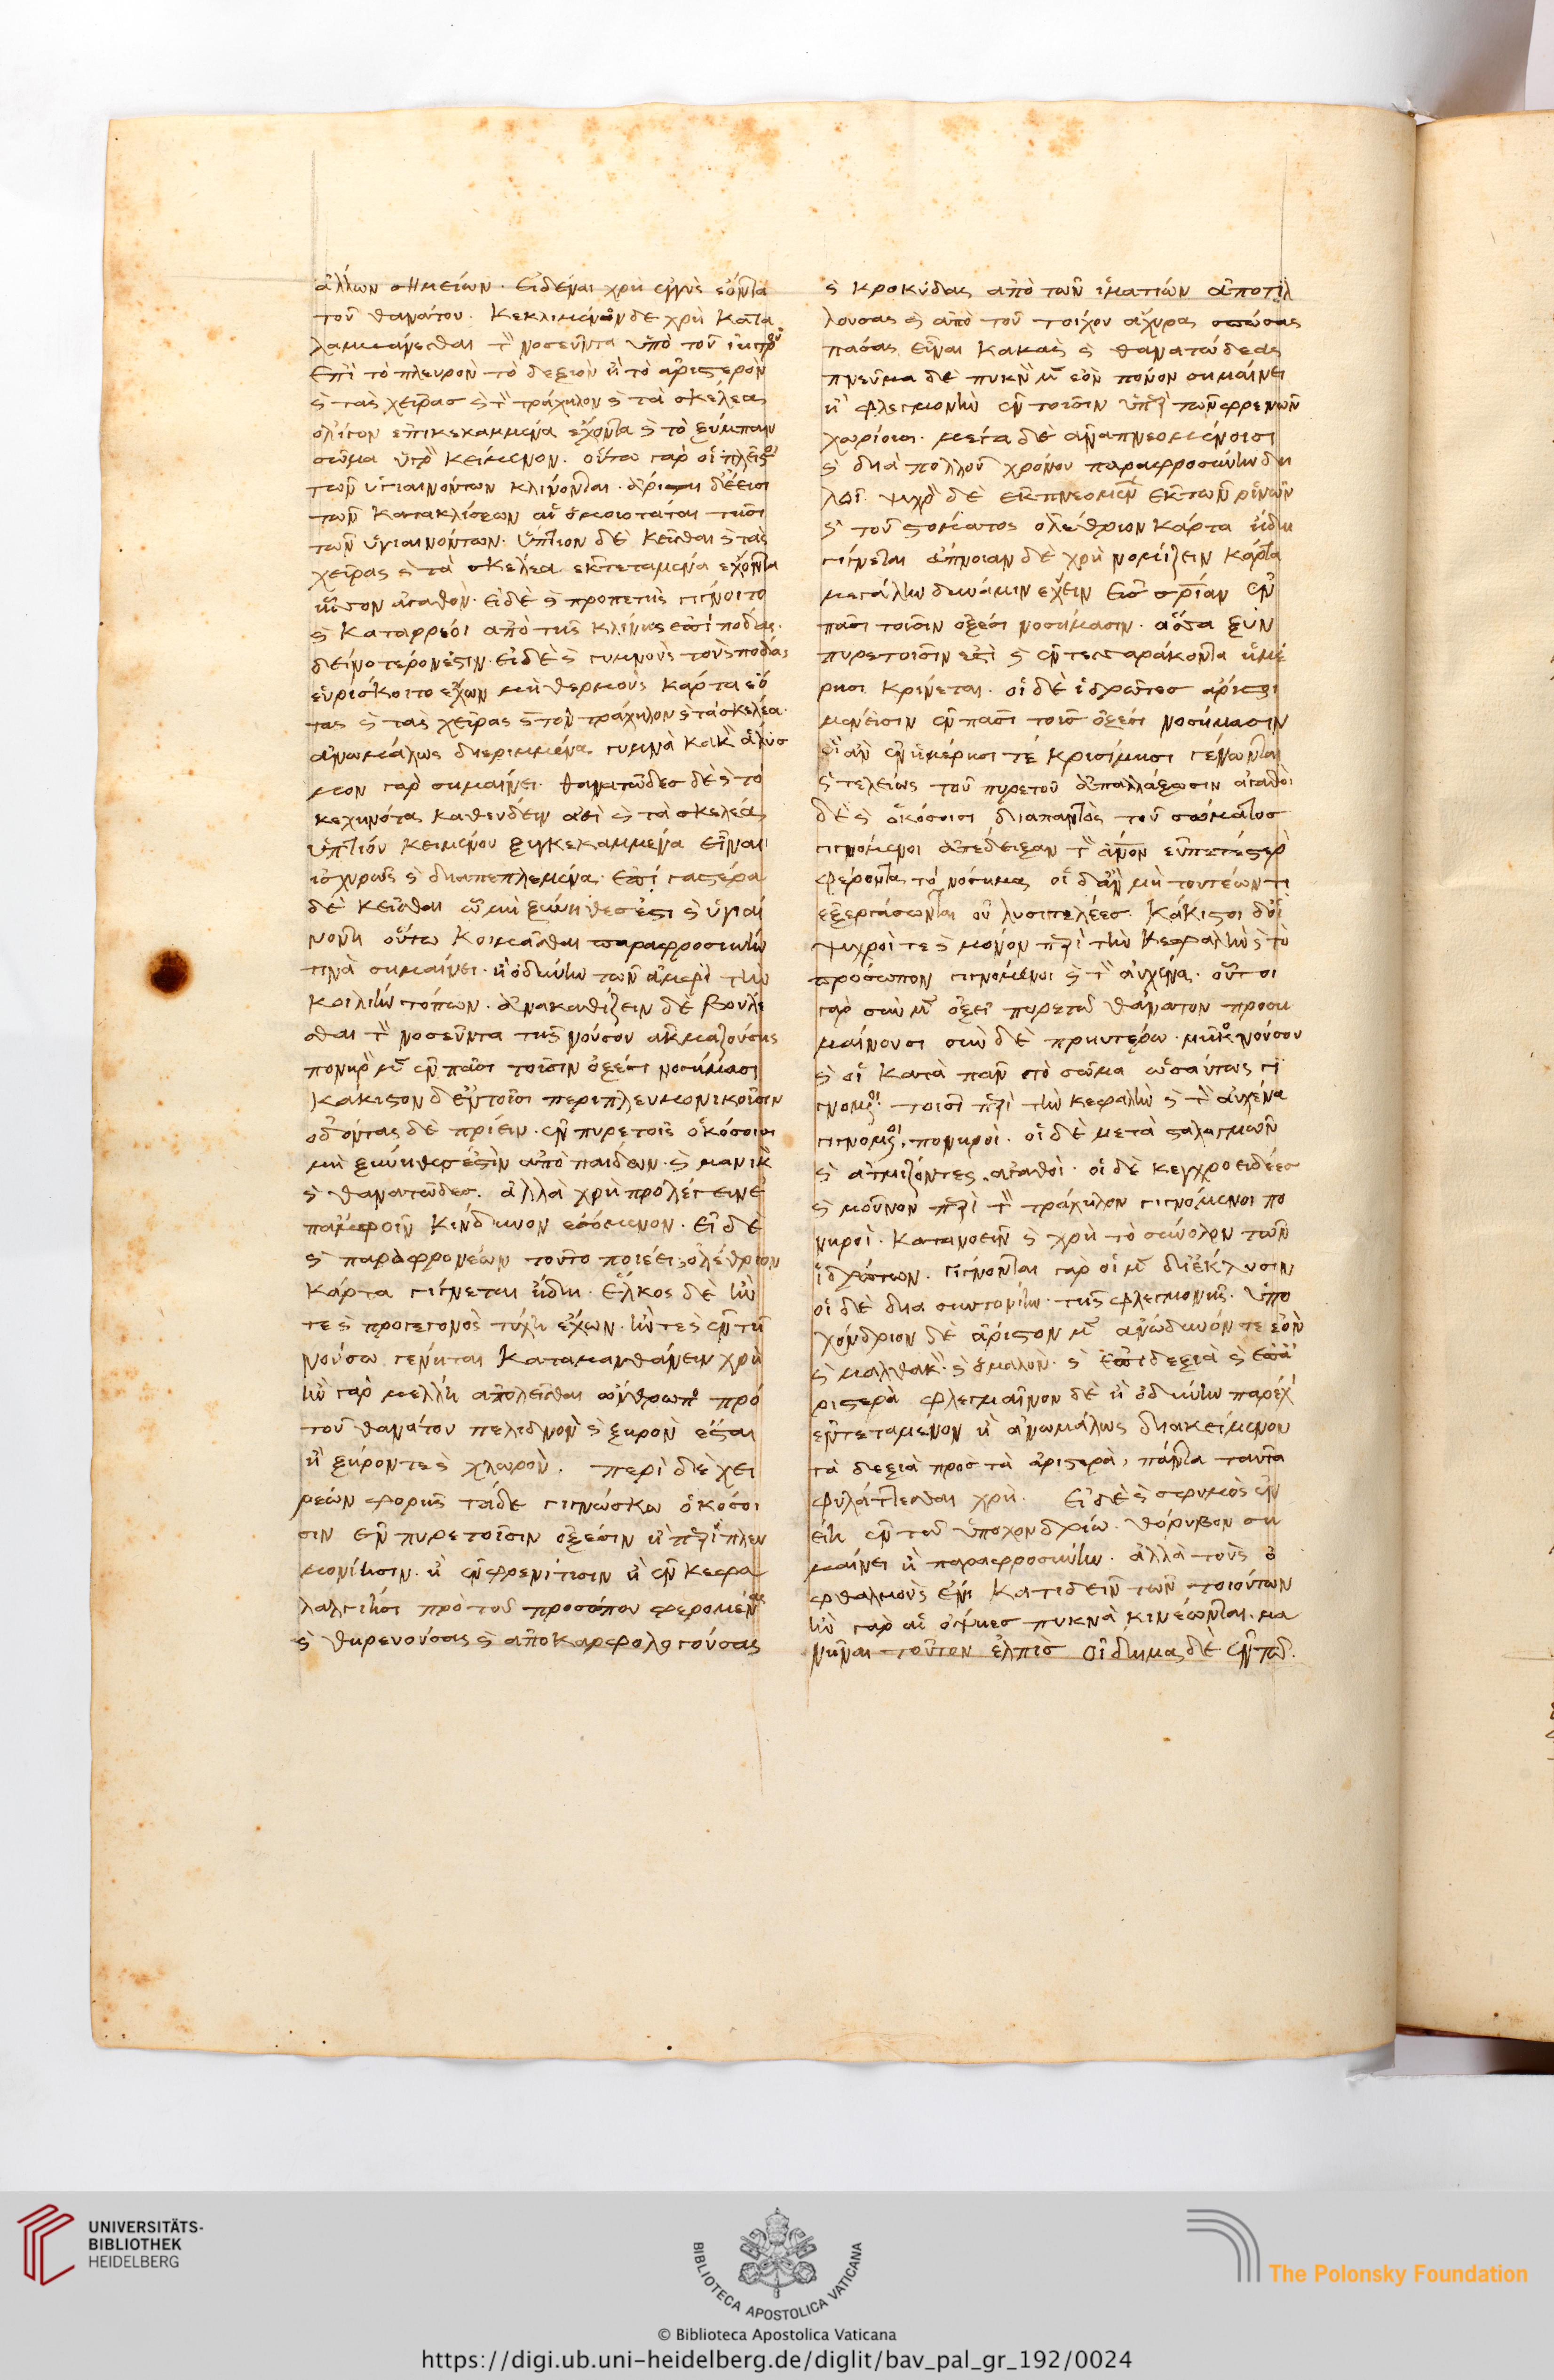 ἄλλων σημείων. Εἰδέναι χρὴ ἐγγὺς ἐόντα
τοῦ θανάτου. Κεκλιμένον δὲ χρὴ κατα
λαμβάνεσθαι τὸν νοσεῦντα ὑπὸ τοῦ ἰητροῦ
ἐπὶ τὸ πλευρὸν τὸ δεξιὸν ἢ τὸ ἀριστερὸν
καὶ τὰς χεῖρας καὶ τὸν τράχηλον καὶ τὰ σκέλεα
ὀλίγον ἐπικεκαμμένα ἔχοντα καὶ τὸ ξύμπαν
σῶμα ὑγρὸν κείμενον. οὕτω γὰρ οἱ πλεῖστοι
τῶν ὑγιαινόντων κλίνονται. ἄρισται δέ εἰσι
τῶν κατακλίσεων αἱ ὁμοιοτάται τῇσι
τῶν ὑγιαινόντων. ὕπτιον δὲ κεῖσθαι καὶ τὰς
χεῖρας καὶ τὰ σκέλεα ἐκτεταμένα ἔχοντα
ἧσσον ἀγαθὸν. εἰ δὲ καὶ προπετὴς γένοιτο
καὶ καταρρέοι ἀπὸ τῆς κλίνης ἐπὶ πόδας.
δεινότερόν ἐστιν. εἰ δὲ καὶ γυμνοὺς τοὺς πόδας
εὑρίσκοιτο ἔχων μὴ θερμοὺς κάρτα ἐό
τας καὶ τὰς χεῖρας καὶ τὸν τράχηλον καὶ τὰ σκέλεα
ἀνωμάλως διερριμμένα γυμνὰ κακὸν ἀλυσ
μὸν γὰρ σημαίνει. θανατῶδες δὲ καὶ τὸ
κεχηνότα καθεύδειν ἀεὶ καὶ τὰ σκέλεα
ὑπτίου κειμένου ξυγκεκαμμένα εἶναι
ἰσχυρῶς καὶ διαπεπλεγμένα. Ἐπὶ γαστέρα
δὲ κεῖσθαι ᾧ μὴ ξύνηθές ἐστι καὶ ὑγιαί
νοντι οὕτω κοιμᾶσθαι παραφροσύνην
τινὰ σημαίνει. ἢ ὀδύνην τῶν ἀμφὶ τὴν
κοιλίην τόπων. ἀνακαθίζειν δὲ βούλε
σθαι τὸν νοσεῦντα τῆς νούσου ἀκμαζούσης
πονηρὸν μὲν ἐν πᾶσι τοῖσιν ὀξέσι νοσήμασι
κάκιστον δ' ἐν τοῖσι περιπλευμονικοῖσιν
ὀδόντας δὲ πρίειν. ἐν πυρετοῖς ὁκόσοισι
μὴ ξύνηθές ἐστιν ἀπὸ παίδων. καὶ μανικὸν
καὶ θανατῶδες. ἀλλὰ χρὴ προλέγειν
κίνδυνον ἐσόμενον. Εἰ δὲ
καὶ παραφρονέων τοῦτο ποιέει. ὀλέθριον
κάρτα γίγνεται ἤδη. Ἕλκος δὲ ἢν
τε καὶ προγεγονὸς τύχῃ ἔχων. ἤν τε καὶ ἐν τῇ
νούσῳ γένηται καταμανθάνειν χρὴ
ἢν γὰρ μέλλῃ ἀπολεῖσθαι ὤνθρωπος πρὸ
τοῦ θανάτου πελιδνὸν καὶ ξηρὸν ἔσται
ἢ ξηρόν τε καὶ χλωρόν. Περὶ δὲ χει
ρέων φορῆς τάδε γιγνώσκω ὁκόσοι
σιν ἐν πυρετοῖσιν ὀξέσιν ἢ περιπλευ
μονίῃσιν. ἢ ἐν φρενίτισιν ἢ ἐν κεφα
λαλγίῃσι πρὸ τοῦ προσώπου φερομένας
καὶ θηρευούσας καὶ ἀποκαρφολογούσας
καὶ κροκύδας ἀπὸ τῶν ἱματίων ἀποτιλ
λούσας καὶ ἀπὸ τοῦ τοίχου ἄχυρα σπώσας
πάσας εἶναι κακὰς καὶ θανατώδεας
πνεῦμα δὲ πυκνὸν μὲν ἐὸν πόνον σημαίνει
ἢ φλεγμονὴν ἐν τοῖσιν ὑπὲρ τῶν φρενῶν
χωρίοισι. μέγα δὲ ἀναπνεομένοισι
καὶ διὰ πολλοῦ χρόνου παραφροσύνην δη
λοῖ. ψυχρὸν δὲ ἐκπνεόμενον ἐκ τῶν ῥινῶν
καὶ τοῦ στόματος ὀλέθριον κάρτα ἤδη
γίγνεται εὔπνοιαν δὲ χρὴ νομίζειν κάρτα
μεγάλην δύναμιν ἔχειν εἰς σωτηρίαν ἐν
πᾶσι τοῖσιν ὀξέσι νοσήμασιν. ὅσα ξὺν
πυρετοῖσίν ἐστι καὶ ἐν τεσσαράκοντα ἡμέ
ρῃσι κρίνεται. οἱ δὲ ἱδρῶτες ἄριστοι
μέν εἰσιν ἐν πᾶσι τοῖς ὀξέσι νοσήμασιν
οἳ ἂν ἐν ἡμέρῃσί τε κρισίμῃσι γένωνται
καὶ τελείως τοῦ πυρετοῦ ἀπαλλάξωσιν ἀγαθοὶ
δὲ καὶ ὁκόσοισι διὰ παντὸς τοῦ σώματος
γιγνόμενοι ἀπέδειξαν τὸν ἄνθρωπον εὐπετέστερον
φέροντα τὸ νόσημα οἳ δ' ἂν μὴ τουτέων τι
ἐξεργάσωνται οὐ λυσιτελέες. Κάκιστοι δ' οἱ
ψυχροί τε καὶ μόνον περὶ τὴν κεφαλὴν καὶ τὸ
πρόσωπον γιγνόμενοι καὶ τὸν αὐχένα. οὗτοι
γὰρ σὺν μὲν ὀξεῖ πυρετῷ θάνατον προση
μαίνουσι σὺν δὲ πρηυτέρῳ. μῆκος νούσου
καὶ οἱ κατὰ πᾶν τὸ σῶμα ὡσαύτως γι
γνόμενοι τοῖσι περὶ τὴν κεφαλὴν καὶ τὸν αὐχένα
γιγνόμενοι, πονηροί. οἱ δὲ μετὰ σταλαγμῶν
καὶ ἀτμίζοντες, ἀγαθοί. οἱ δὲ κεγχροειδέες
καὶ μοῦνον περὶ τὸν τράχηλον γιγνόμενοι πο
νηροί. κατανοεῖν καὶ χρὴ τὸ σύνολον τῶν
ἱδρώτων. γίγνονται γὰρ οἱ μὲν δι' ἔκλυσιν
οἱ δὲ διὰ συντονίην τῆς φλεγμονῆς. Ὑπο
χόνδριον δὲ ἄριστον μὲν ἀνώδυνόν τε ἐὸν
καὶ μαλθακὸν. καὶ ὁμαλὸν. καὶ ἐπὶ δεξιὰ καὶ ἐπ' ἀ
ριστερὰ φλεγμαῖνον δὲ ἢ ὀδύνην παρέχον
ἐντεταμένον ἢ ἀνωμάλως διακείμενον
τὰ δεξιὰ πρὸς τὰ ἀριστερά, πάντα ταῦτα
φυλάττεσθαι χρή. Εἰ δὲ καὶ σφυγμὸς ἐν
είη ἐν τῷ ὑποχονδρίῳ. θόρυβον ση
μαίνει ἢ παραφροσύνην. ἀλλὰ τοὺς ὀ
φθαλμοὺς κατιδεῖν τῶν τοιούτων
ἢν γὰρ αἱ ὄψιες πυκνὰ κινέωνται. μα
νῆναι τοῦτον ἐλπίς οἴδημα δὲ ἐν τῷ.
UNIVERSITÄTS-
BIBLIOTHEK
HEIDELBERG
BIBLIOTECA APOSTOLICA VATICANA
The Polonsky Foundation
© Biblioteca Apostolica Vaticana
https://digi.ub.uni-heidelberg.de/diglit/bav_pal_gr_192/0024